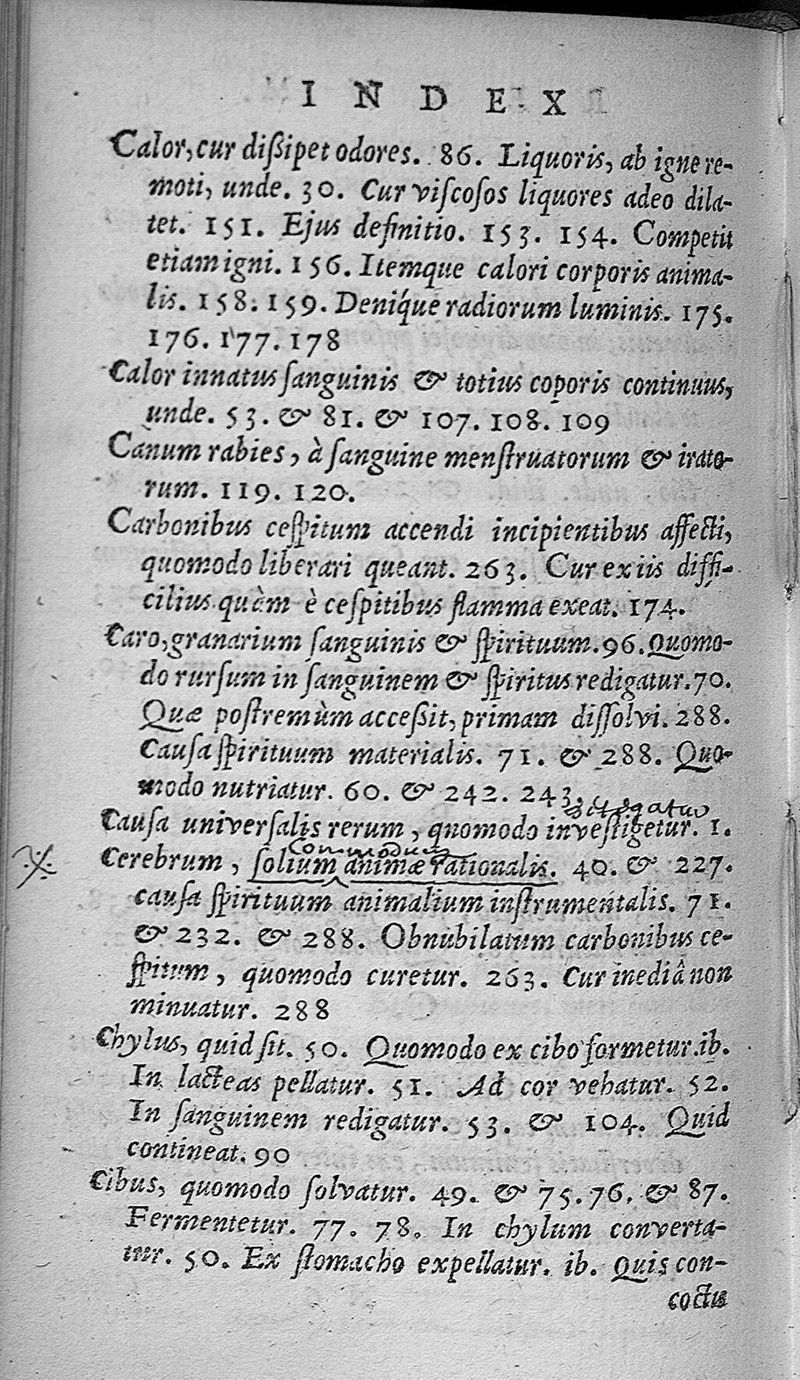 INDEX
Calor, cur dißipet odores. 86. Liquoris, ab igne re-
moti, unde. 30. Cur viſcoſos liquores adeo dila-
tet. 151. Ejus definitio. 153. 154. Competit
etiam igni. 156. Itemque calori corporis anima-
lis. 158. 159. Denique radiorum luminis. 175.
176. 177. 178
Calor innatus ſanguinis & totius coporis continuus,
unde. 53. & 81. & 107. 108. 109
Canum rabies, à ſanguine menſtruatorum & irato-
rum. 119. 120.
Carbonibus ceſpitum accendi incipientibus affecti,
quomodo liberari queant. 263. Cur ex iis diffi-
cilius quàm è ceſpitibus flamma exeat. 174.
Caro, granarium ſanguinis & ſpirituum. 96. Quomo-
do rurſum in ſanguinem & ſpiritus redigatur. 70.
Quæ poſtremùm acceßit, primam diſſolvi. 288.
Cauſa ſpirituum materialis. 71. & 288. Quo-
modo nutriatur. 60. & 242. 243.
Cauſa universalis rerum, quomodo inveſtigetur. 1.
Commodius
Cerebrum, ſolium animæ rationalis. 40. & 227.
cauſa ſpirituum animalium inſtrumentalis. 71.
& 232. & 288. Obnubilatum carbonibus ce-
ſpitum, quomodo curetur. 263. Cur inediâ non
minuatur. 288
Chylus, quid ſit. 50. Quomodo ex cibo formetur. ib.
In lacteas pellatur. 51. Ad cor vehatur. 52.
In ſanguinem redigatur. 53. & 104. Quid
contineat. 90
Cibus, quomodo ſolvatur. 49. & 75. 76. & 87.
Fermentetur. 77. 78. In chylum converta-
tur. 50. Ex ſtomacho expellatur. ib. Quis con-
coctu